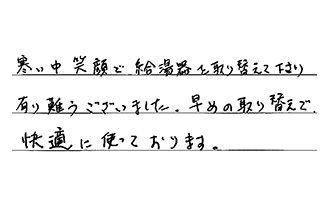 寒い中 笑顔で 給湯器を取り替えて下さり
有り難うございました。早めの取り替えで、
快適に使っております。